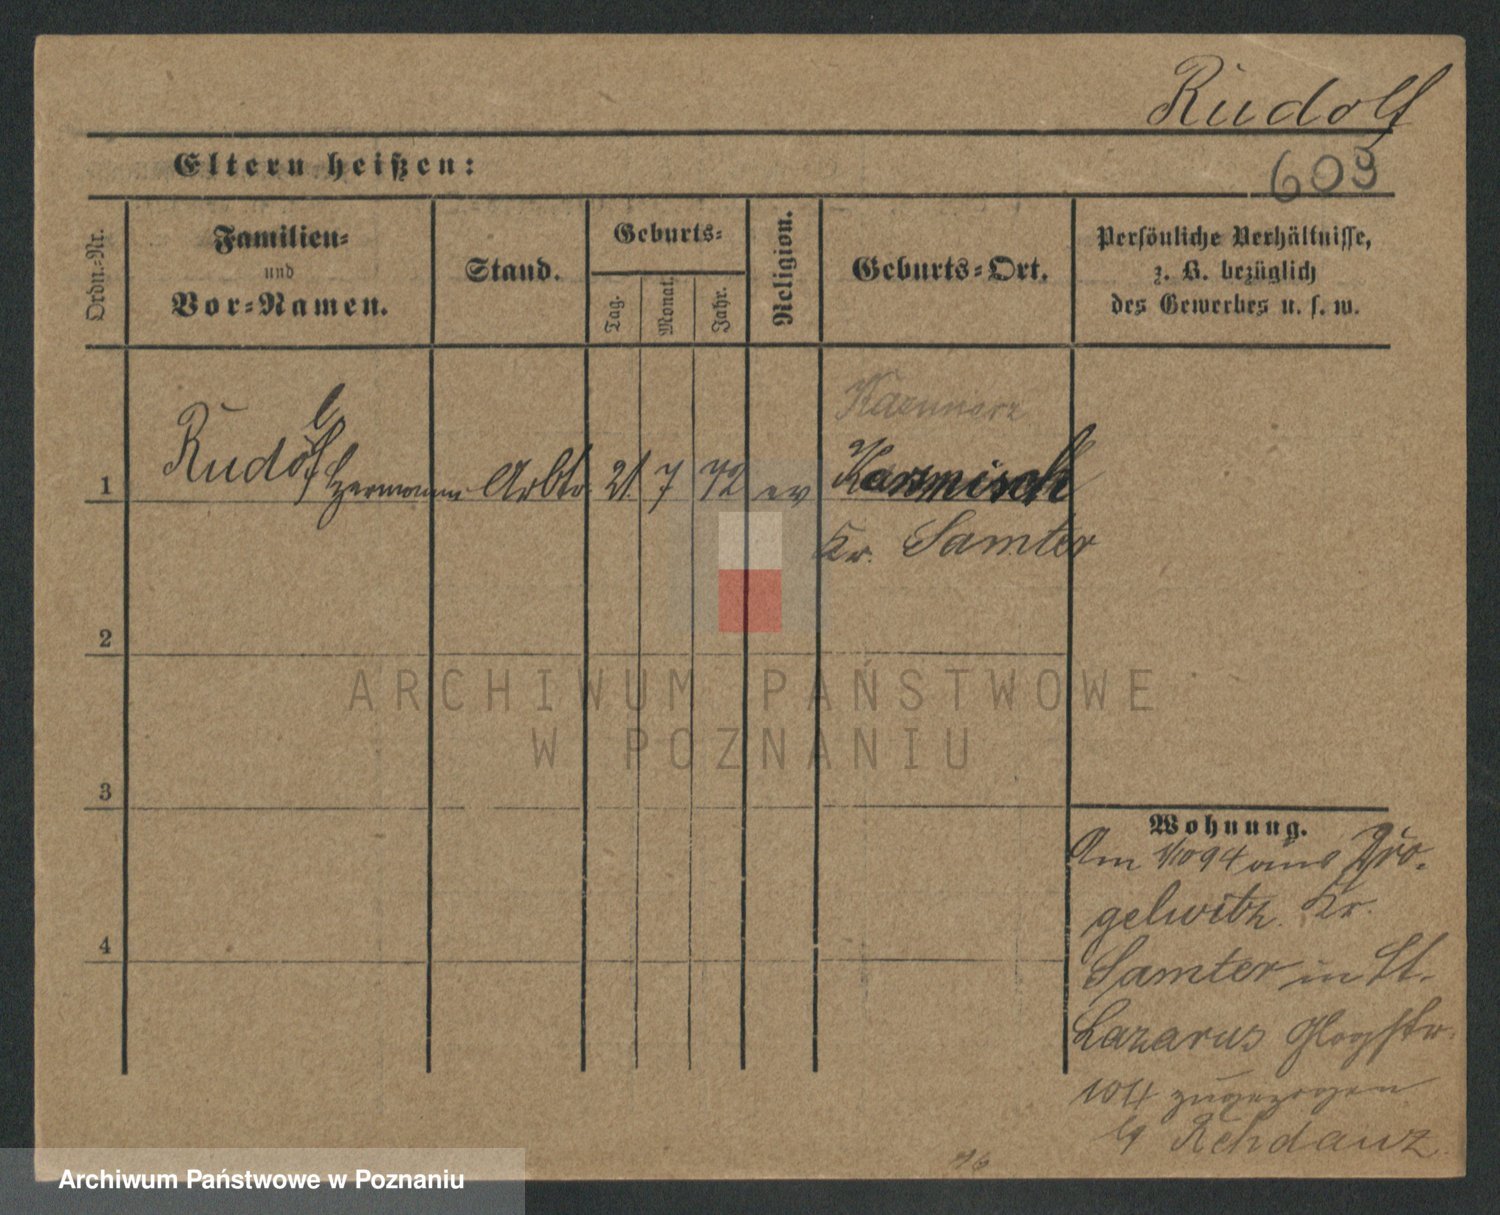 Rudolf
Eltern heißen:
609
Ordn.-Nr.
Familien-
und
Vor-Namen.
Stand.
Geburts-
Tag.
Monat.
Jahr.
Religion.
Geburts-Ort.
Persönliche Verhältnisse,
z. B. bezüglich
des Gewerbes u. s. w.
Kazmierz
1 Rudolf Hermann Arbtr. 21 7 72 ev Kasmisch
Kr. Samter
2
3
4
Wohnung.
Am 1/10 94 aus
gelwitz. Kr.
Samter in St.
Lazarus Glogstr.
104 zugezogen
Rehdanz
ARCHIWUM PAŃSTWOWE
W POZNANIU
Archiwum Państwowe w Poznaniu